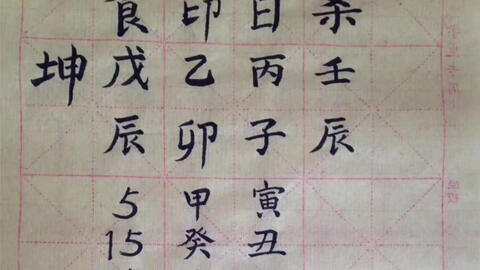 食印日杀
坤戊乙丙壬
辰卯子辰
5甲寅
15癸丑